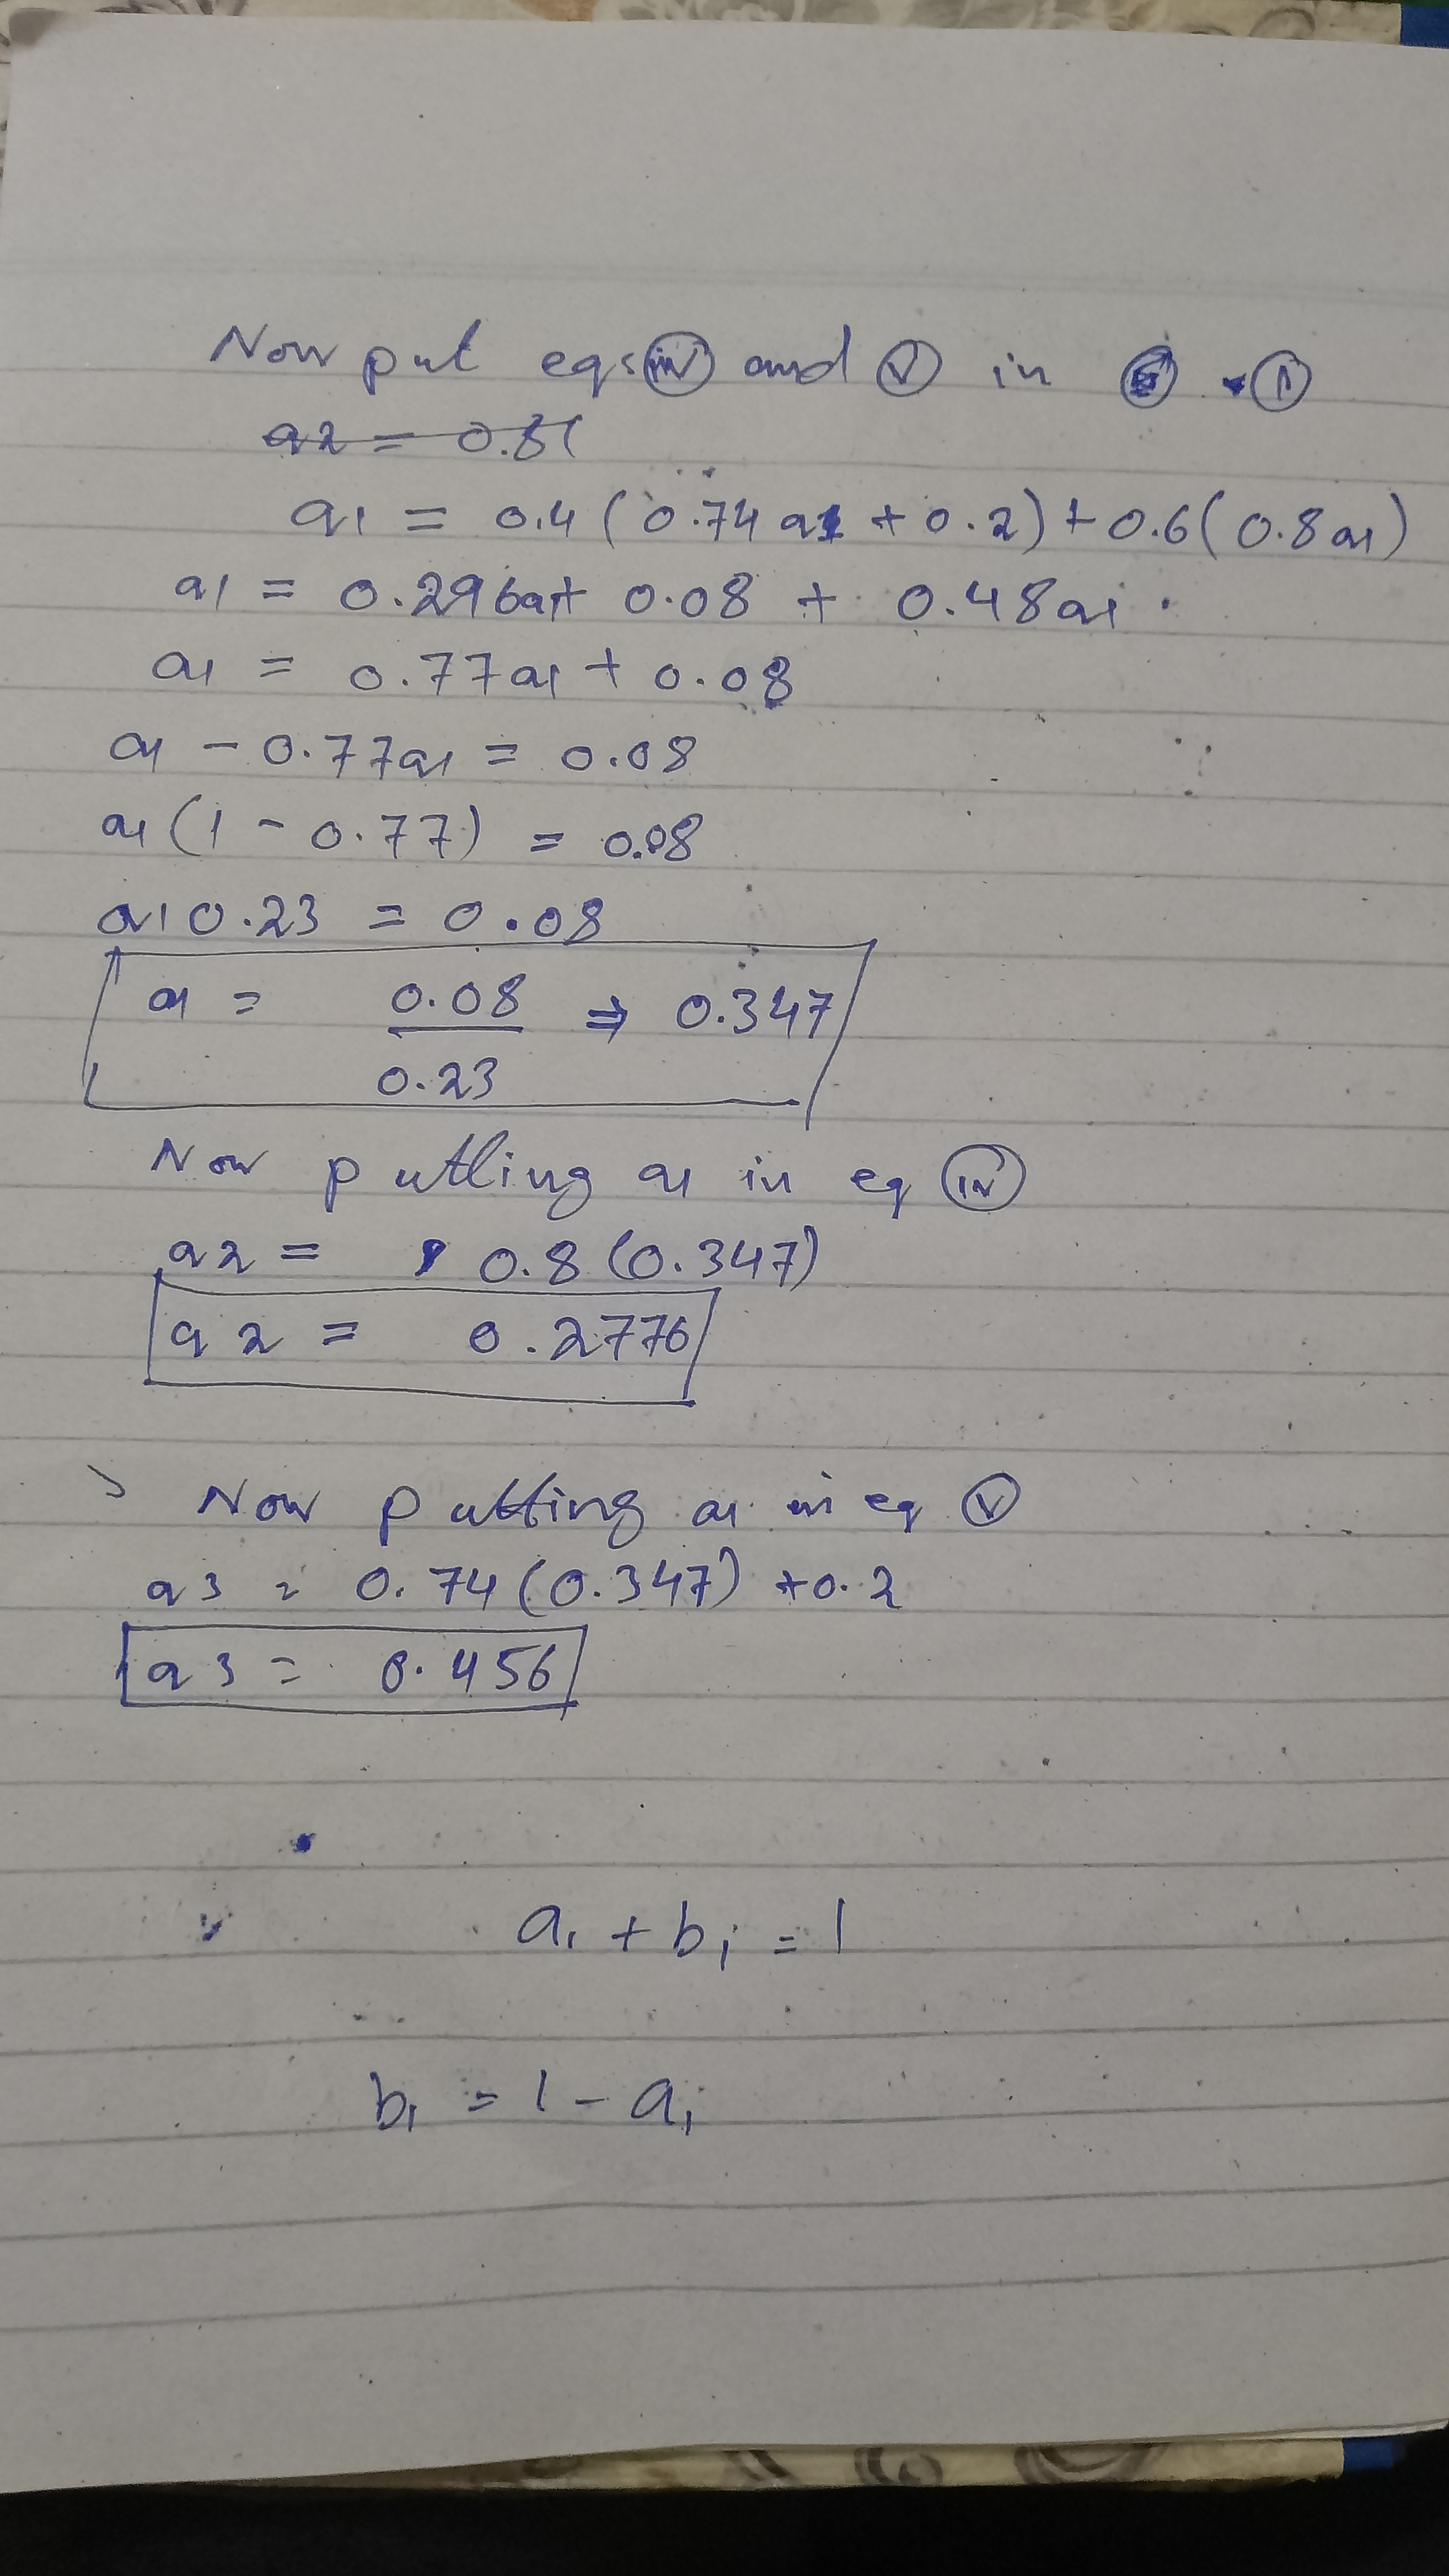 Now put eqs (iv) and (v) in (i)
a2 = 0.8(
a1 = 0.4 ( 0.74 a1 + 0.2 ) + 0.6 ( 0.8 a1 )
a1 = 0.296a1+ 0.08 + 0.48a1
a1 = 0.77a1 + 0.08
a1 - 0.77a1 = 0.08
a1 ( 1 - 0.77 ) = 0.08
a1 0.23 = 0.08
a1 = 0.08 ⇒ 0.347
0.23
Now putting a1 in eq (iv)
a2 = 0.8 (0.347)
a2 = 0.2776
Now putting a1 in eq (v)
a3 = 0.74 (0.347) +0.2
a3 = 0.456
a₁ + b₁ = 1
b₁ = 1 - a₁